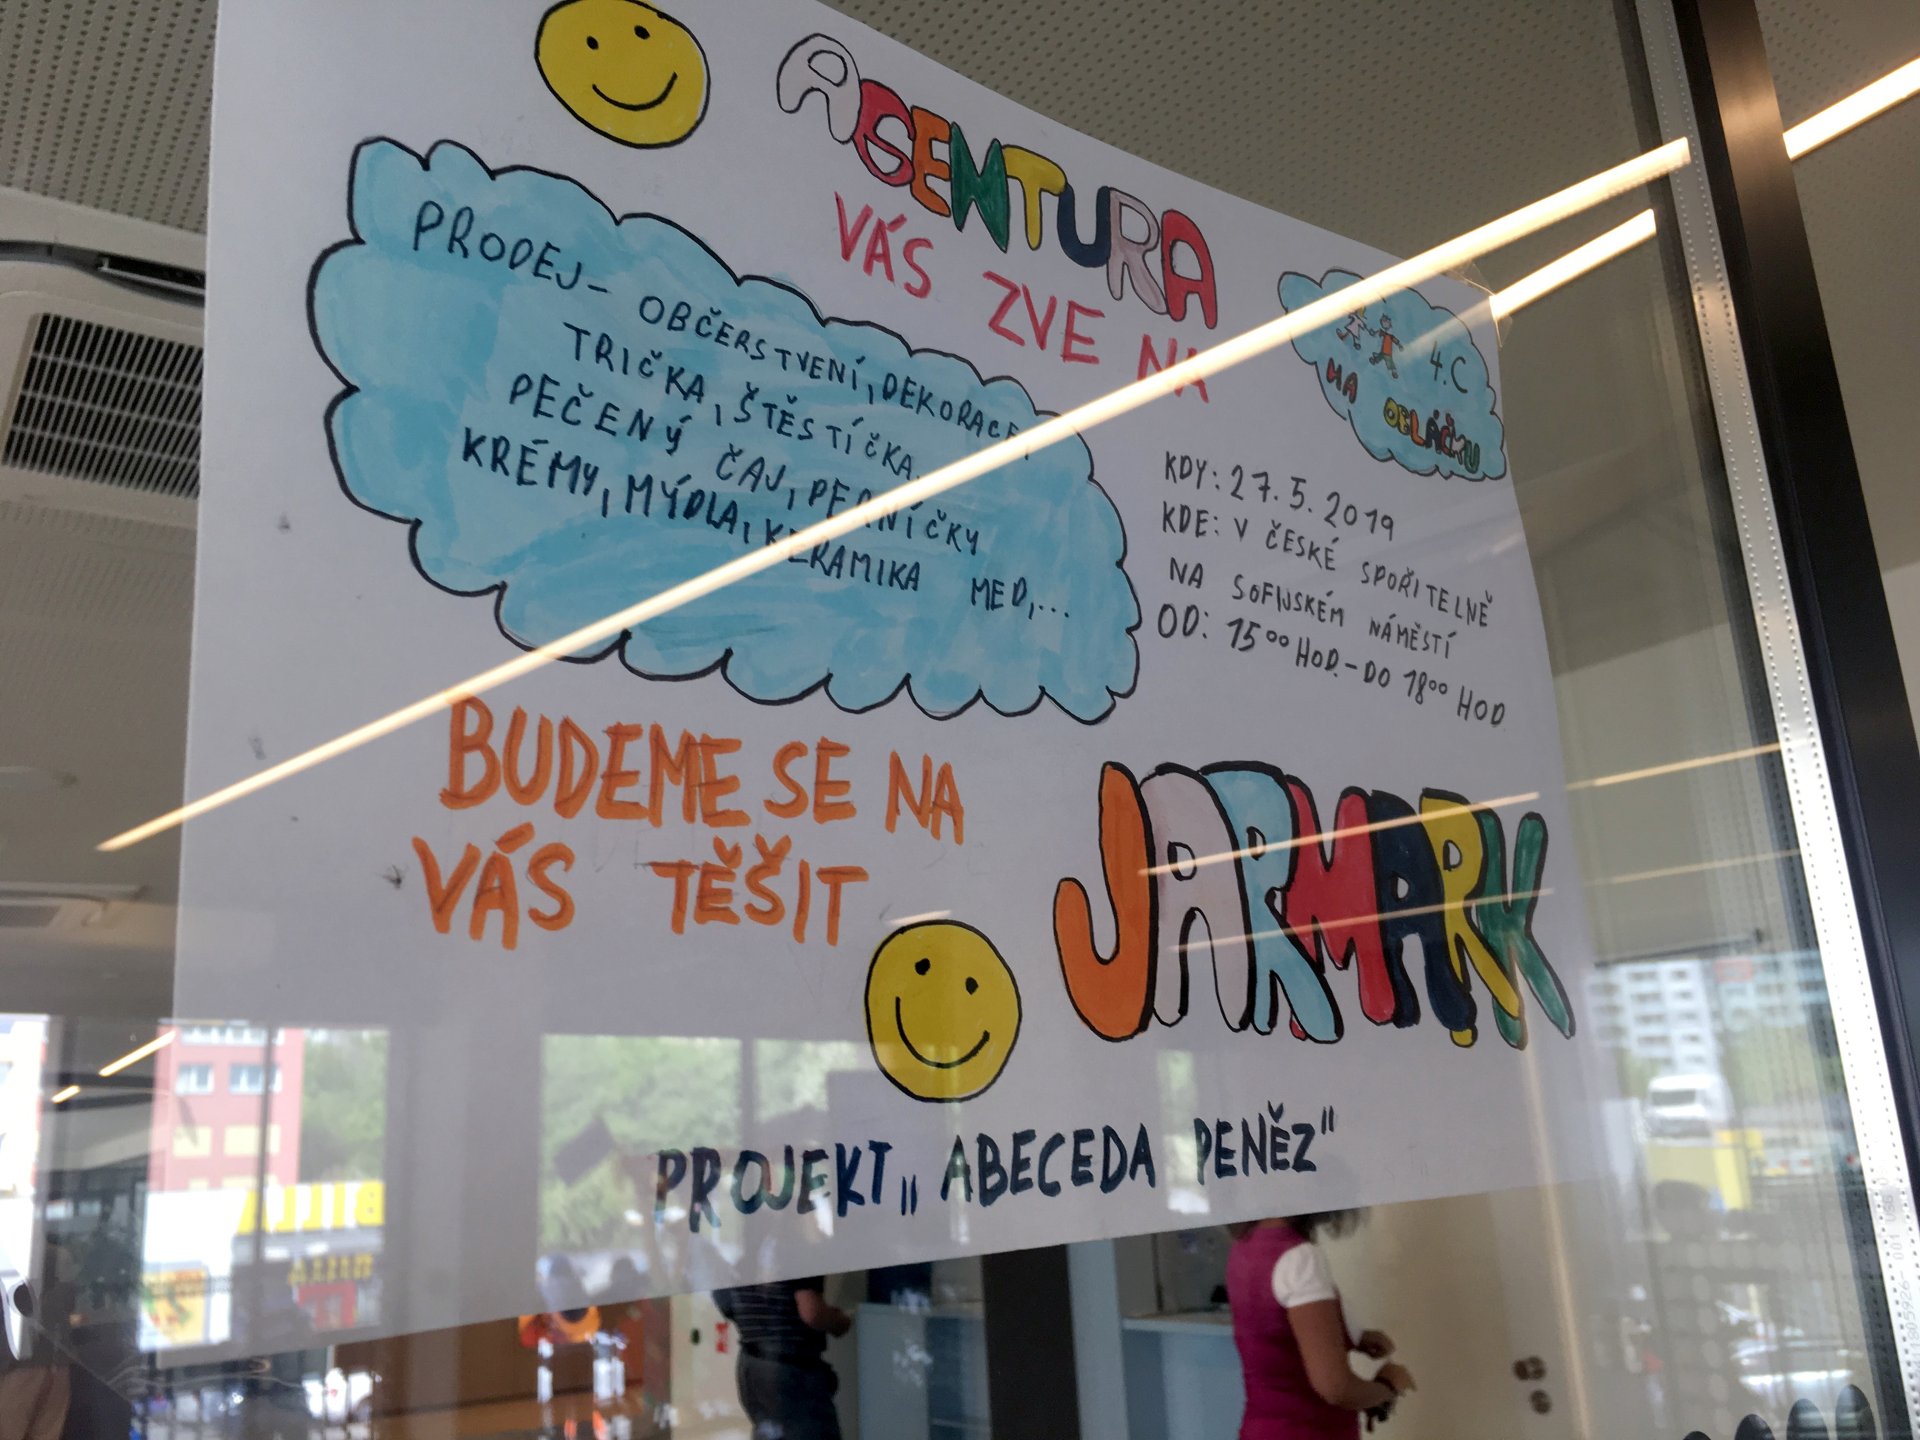 AGENTURA
VÁS ZVE NA
4.C
NA OBLÁČKU
PRODEJ- OBČERSTVENÍ, DEKORACE,
TRIČKA, ŠTĚSTÍČKA,
PEČENÝ ČAJ, PERNÍČKY
KRÉMY, MÝDLA, KERAMIKA MED,...
KDY: 27.5.2019
KDE: V ČESKÉ SPOŘITELNĚ
NA SOFIJSKÉM NÁMĚSTÍ
OD: 15⁰⁰ HOD.-DO 18⁰⁰ HOD
BUDEME SE NA
VÁS TĚŠIT
JARMARK
PROJEKT „ABECEDA PENĚZ"
BILLA
BILLA